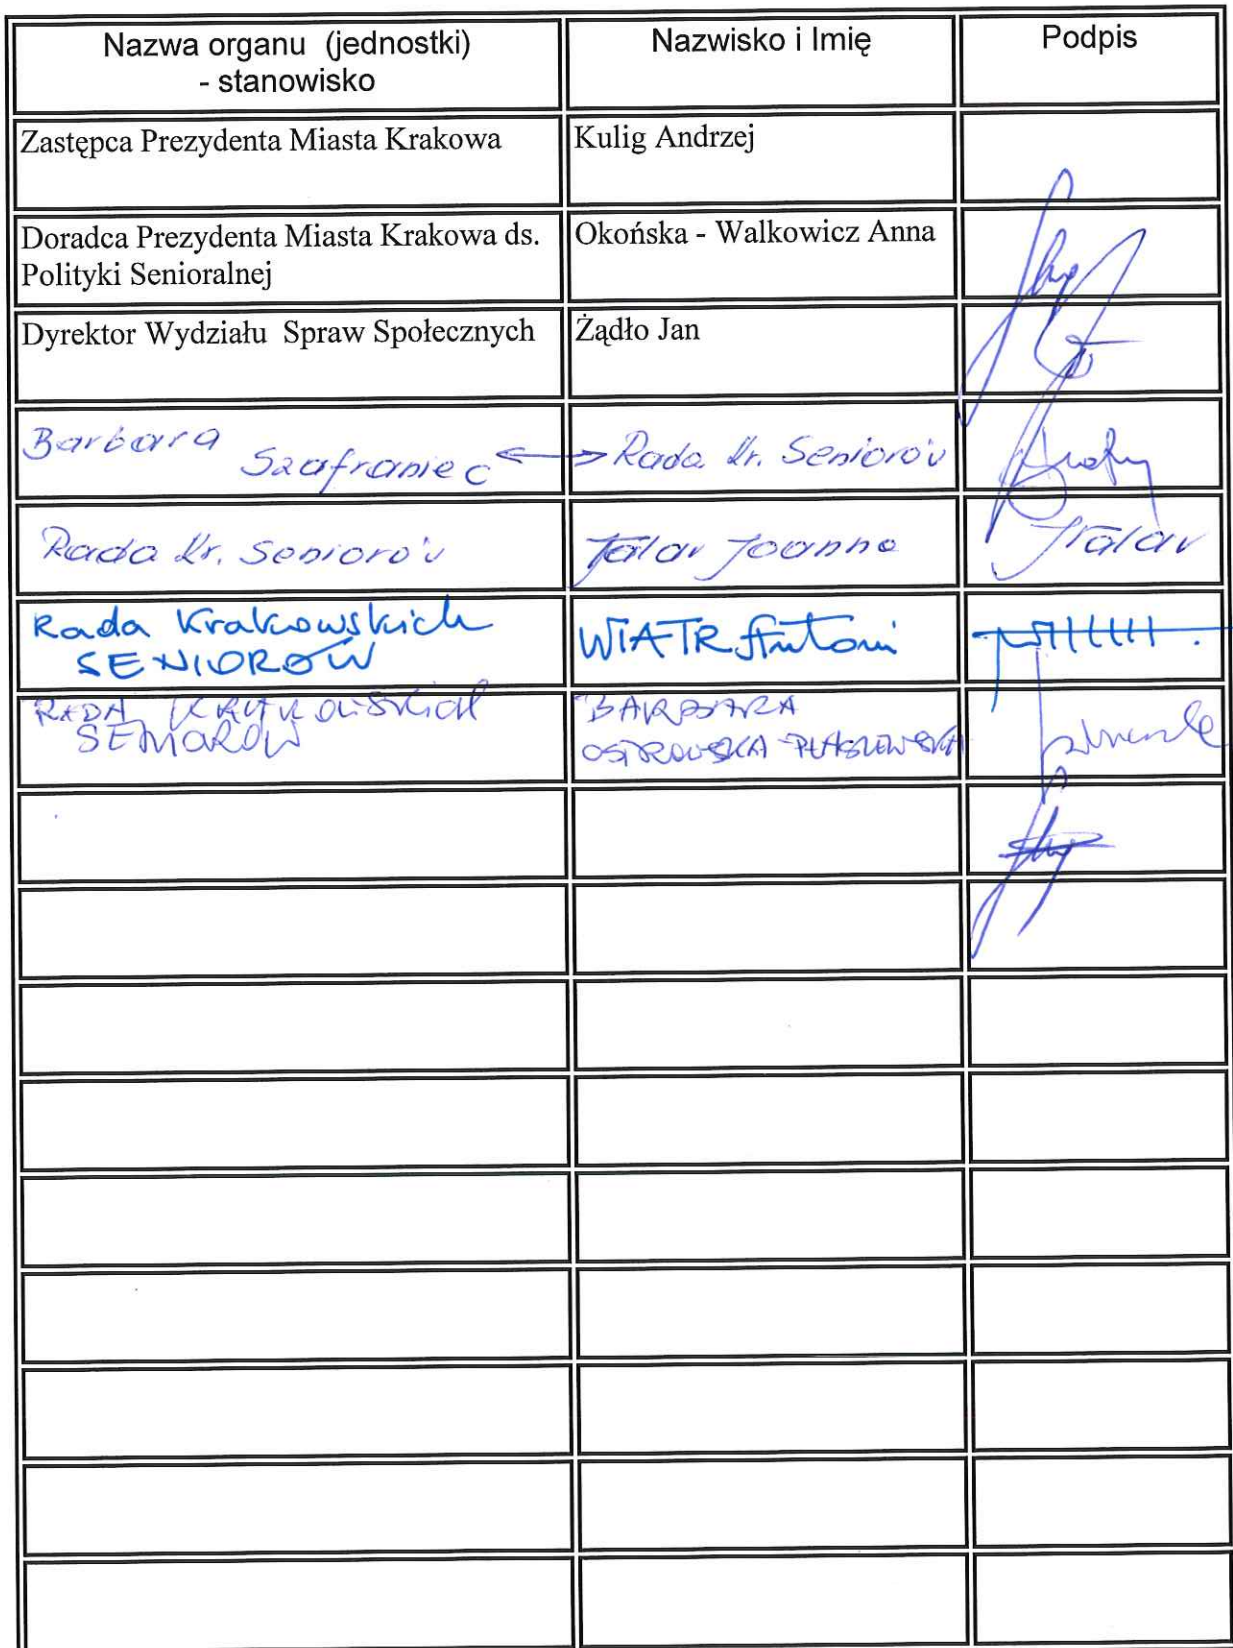 Nazwa organu (jednostki)
- stanowisko
Nazwisko i Imię
Podpis
Zastępca Prezydenta Miasta Krakowa
Kulig Andrzej
Doradca Prezydenta Miasta Krakowa ds.
Polityki Senioralnej
Okońska - Walkowicz Anna
Dyrektor Wydziału Spraw Społecznych
Żądło Jan
Barbara
Szafraniec
Rada Kr. Seniorów
Rada Kr. Seniorów
Talar Joanna
JTalar
Rada Krakowskich
SENIORÓW
WIATR Antoni
RADA KRAKOWSKICH
SENIORÓW
BARBARA
OSTROWSKA-